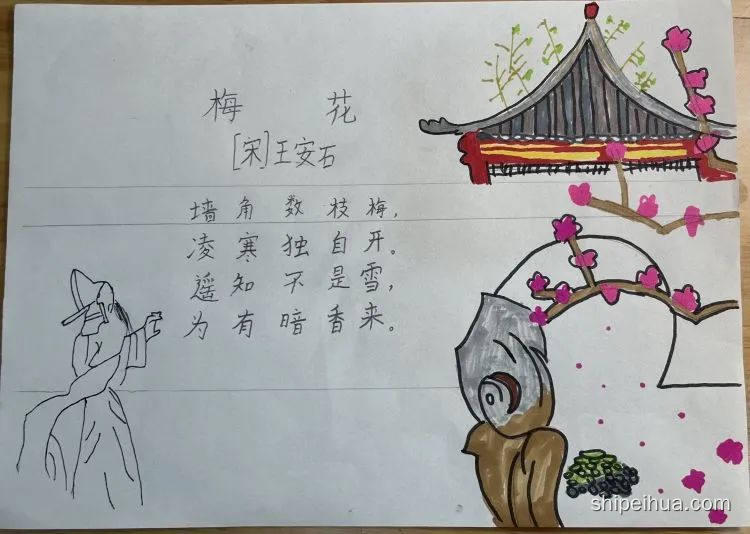 梅 花
[宋]王安石
墙角数枝梅，
凌寒独自开。
遥知不是雪，
为有暗香来。
shipeihua.com